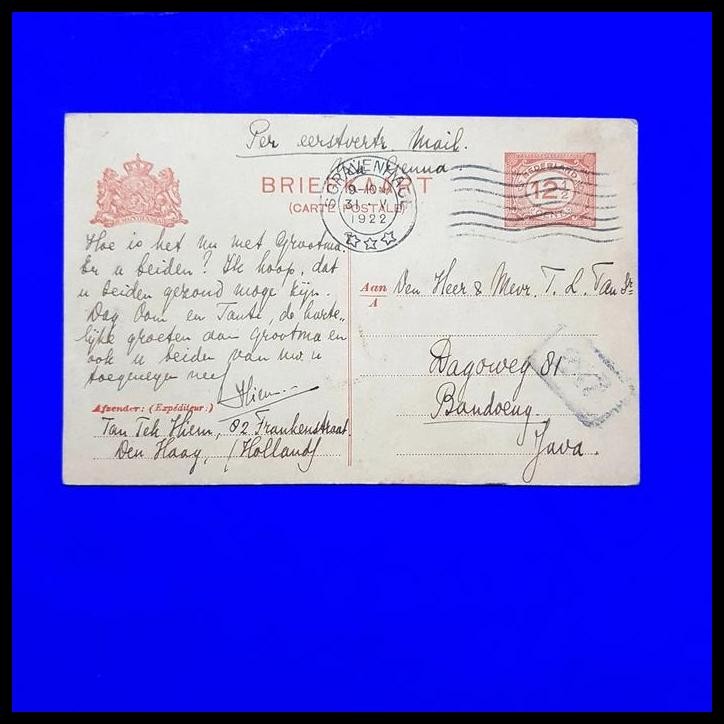 Per eerstvertr. Mail.
Genua
BRIEFKAART
(CARTE POSTALE)
'S-GRAVENHAGE
9-10
31 V
1922
NEDERLAND
12½
Hoe is het nu met Grootma.
En u beiden? Ik hoop, dat
u beiden gezond moge zijn.
Dag Oom en Tante, de harte-
lijke groeten aan Grootma en
ook u beiden van uw u
toegenegen neef
Hiem.
Afzender: (Expéditeur:)
Tan Tek Hiem, 82 Frankenstraat
Den Haag, (Holland)
Aan Den Heer & Mevr. T. L. Tan Sr
A
Dagoweg 81
Bandoeng.
Java.